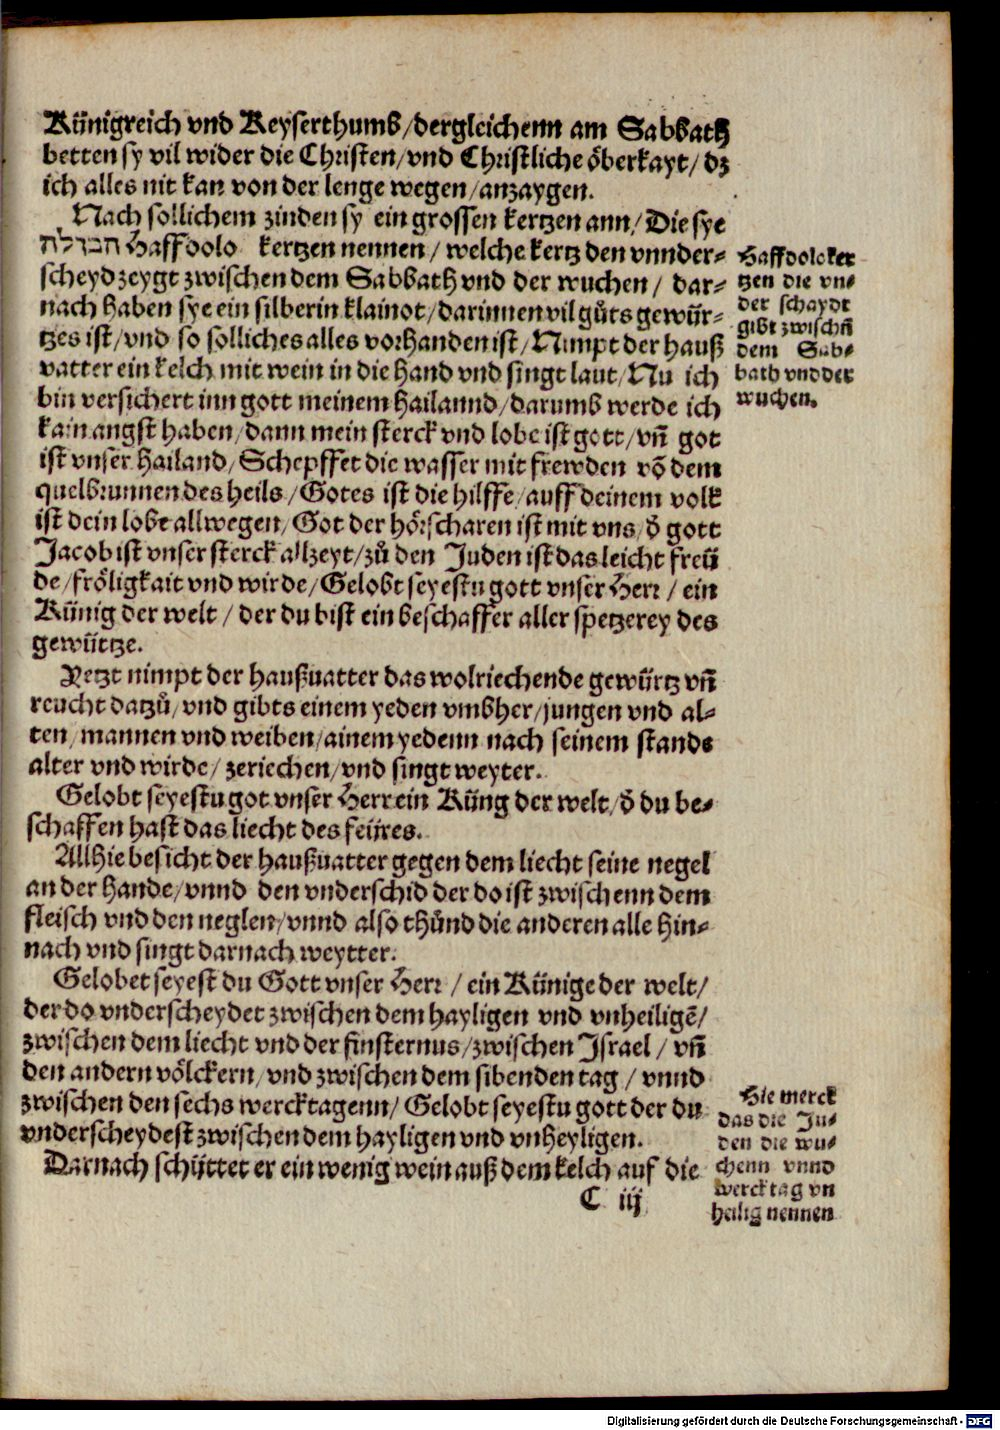 Künigreich vnd Keyserthumb/dergleichenn am Sabbath
betten sy vil wider die Christen/vnd Christliche öberkayt/dz
ich alles nit kan von der lenge wegen/anzaygen.
Nach sollichem zinden sy ein grossen kertzen ann/Die sye
הבדלה Haffdolo kertzen nennen/welche kertz den vnnder-
scheyd zeygt zwischen dem Sabbath vnd der wuchen/dar-
nach haben sye ein silberin klainot/darinnen vil gůts gewür-
tzes ist/vnd so solliches alles vorhanden ist/Nimpt der hauß
vatter ein kelch mit wein in die hand vnd singt laut/Nu ich
bin versichert inn gott meinem hailannd/darumb werde ich
kain angst haben/dann mein sterck vnd lobe ist gott/vñ got
ist vnser hailand/Schepffet die wasser mit frewden võ dem
quelbrunnen des heils/Gotes ist die hilffe/auff deinem volk
ist dein lobe allwegen/Got der hörscharen ist mit vns/ð gott
Jacob ist vnser sterck allzeyt/zů den Juden ist das leicht freü
de/fröligkait vnd wirde/Gelobt seyestu gott vnser Herr/ein
Künig der welt/der du bist ein beschaffer aller spetzerey des
gewürtze.
Yetzt nimpt der haußuatter das wolriechende gewürtz vñ
reucht datzů/vnd gibts einem yeden vmbher/jungen vnd al-
ten/mannen vnd weiben/ainem yedenn nach seinem stands
alter vnd wirde/zeriechen/vnd singt weyter.
Gelobt seyestu got vnser Herr ein Küng der welt/ð du be-
schaffen hast das liecht des feüres.
Allhie besicht der haußuatter gegen dem liecht seine negel
an der hande/vnnd den vnderschid der do ist zwischenn dem
fleisch vnd den neglen/vnnd also thůnd die anderen alle hin-
nach vnd singt darnach weytter.
Gelobet seyest du Gott vnser Herr/ein Künige der welt/
der do vnderscheydet zwischen dem hayligen vnd vnheiligẽ/
zwischen dem liecht vnd der finsternus/zwischen Israel/vñ
den andern völckern/vnd zwischen dem sibenden tag/vnnd
zwischen den sechs wercktagenn/Gelobt seyestu gott der du
vnderscheydest zwischen dem hayligen vnd vnheyligen.
Darnach schüttet er ein wenig wein auß dem kelch auf die
C iij
Haffdolo ker
tzen die vn-
der schaydt
gibt zwischñ
dem Sab-
bath vnd der
wuchen.
Hie merck
das die Ju-
den die wu-
chenn vnnd
wercktag vn
heilig nennen
Digitalisierung gefördert durch die Deutsche Forschungsgemeinschaft - DFG